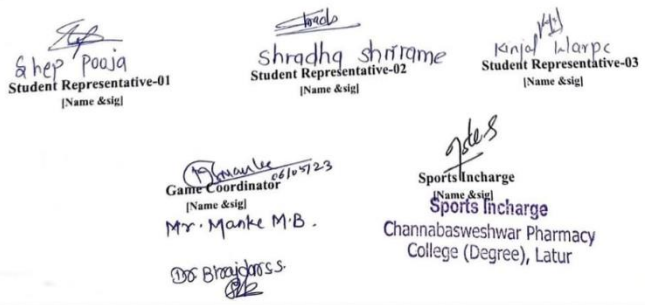 Shep Pooja
Student Representative-01
[Name &sig]
Shradha Shrirame
Student Representative-02
[Name &sig]
Kinjal Warpe
Student Representative-03
[Name &sig]
Manke
06/05/23
Game Coordinator
[Name &sig]
Mr. Manke M.B.
Sports Incharge
[Name &sig]
Sports Incharge
Channabasweshwar Pharmacy
College (Degree), Latur
S.S.